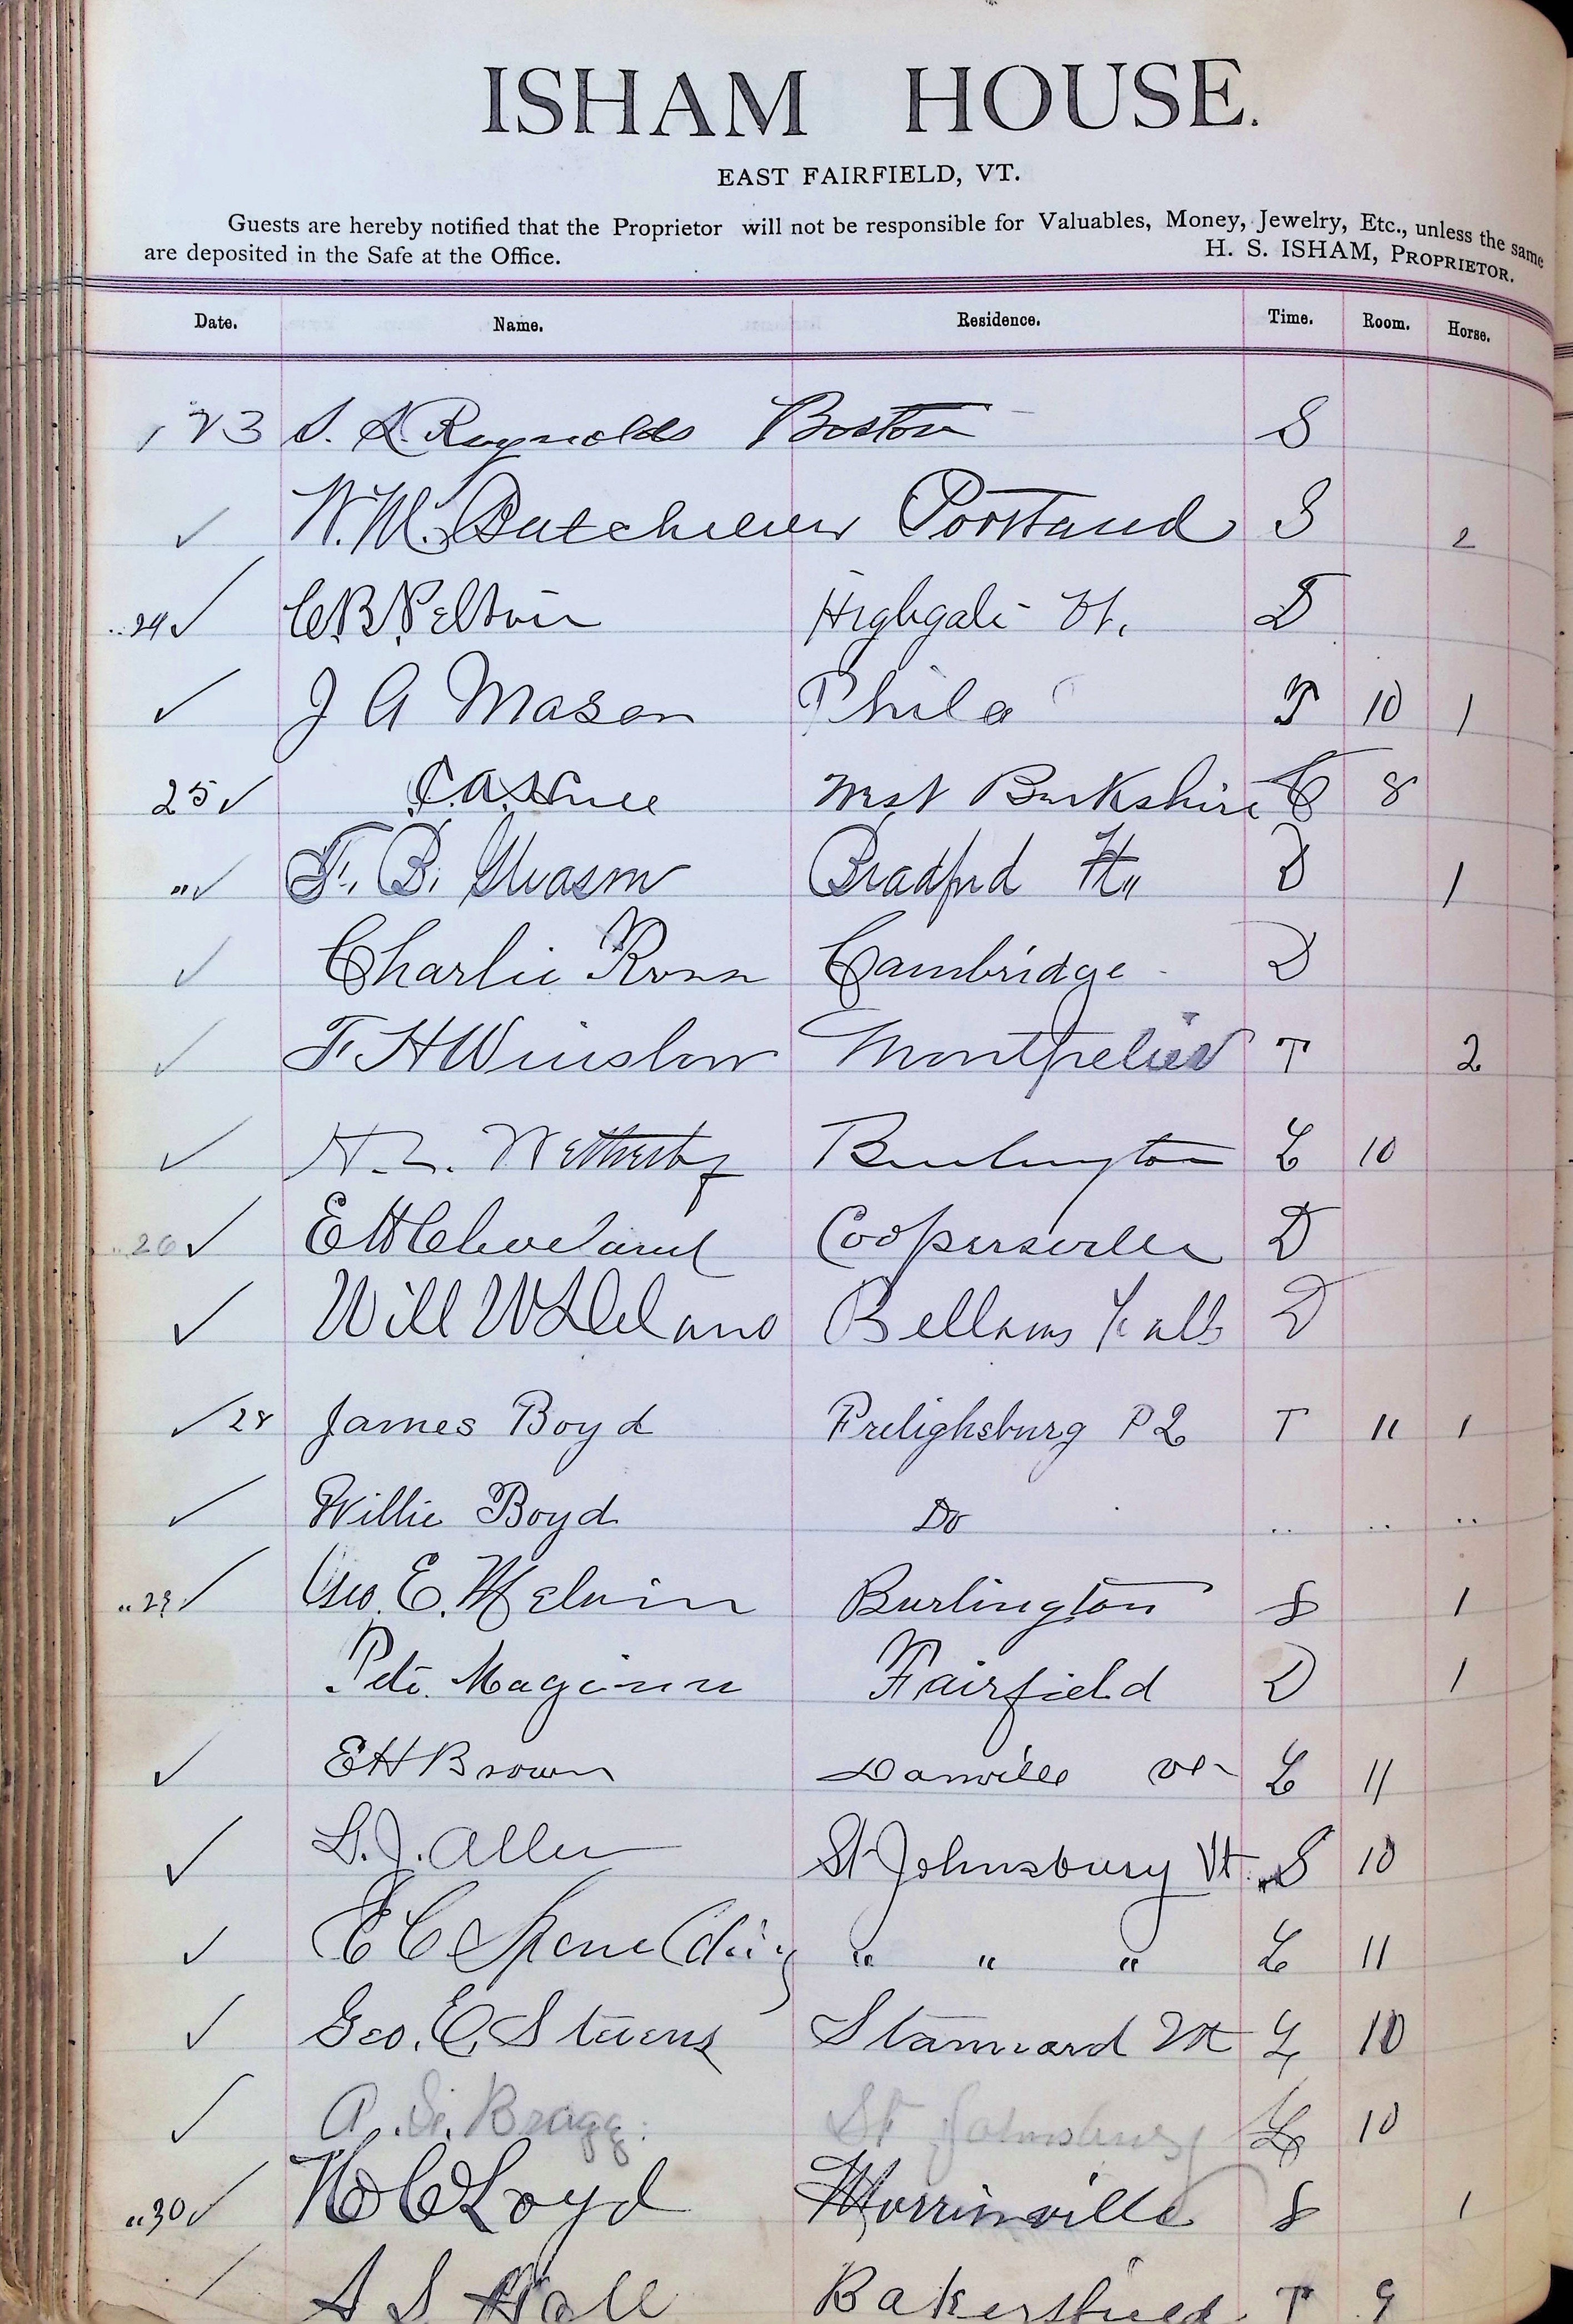 ISHAM HOUSE.
EAST FAIRFIELD, VT.
Guests are hereby notified that the Proprietor will not be responsible for Valuables, Money, Jewelry, Etc., unless the same
are deposited in the Safe at the Office. H. S. ISHAM, PROPRIETOR.
Date. Name. Residence. Time. Room. Horse.
23 S. L. Reynolds Boston S
✓ W. M. Portland S 2
" 24 ✓ C B Pelton Highgate Vt. D
✓ J A Mason Phila T 10 1
25 ✓ West Berkshire 8
" ✓ F. B. Gleason Bradford Vt. D 1
✓ Charlie Ross Cambridge D
✓ F. H Winslow Montpelier T 2
✓ Wetherby Burlington L 10
" 26 ✓ E H Cleveland Coopersville D
✓ Will W Delano Bellows Falls D
✓ 28 James Boyd Frelighsburg P Q T 11 1
✓ Willie Boyd Do " " "
" 29 ✓ Geo. E. Melvin Burlington S 1
Pete. Maginn Fairfield D 1
✓ E H Brown Danville Vt L 11
✓ L. J. Allen St Johnsbury Vt. S 10
✓ E C Spaulding " " " L 11
✓ Geo. E. Stevens Stannard Vt L 10
✓ A. Bragg. St Johnsbury L 10
" 30 ✓ H C Loyd Morrisville S 1
✓ S S Hall Bakersfield T 9